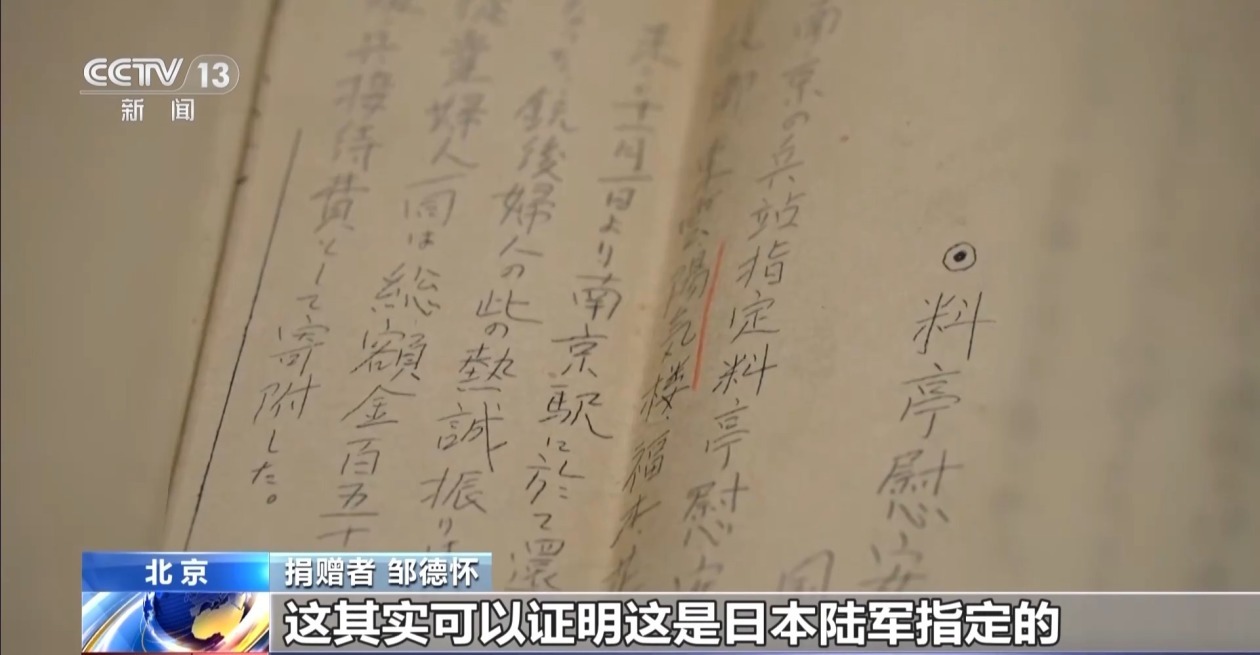 CCTV 13
新闻
料亭慰安
南京の兵站指定料亭慰安
陽気楼、福
来る十一月一日より南京駅に於て還
銃後婦人の此の熱誠振りは
従業婦人一同は総額金百五十
兵接待費として寄附した。
北京
捐赠者 邹德怀
这其实可以证明这是日本陆军指定的